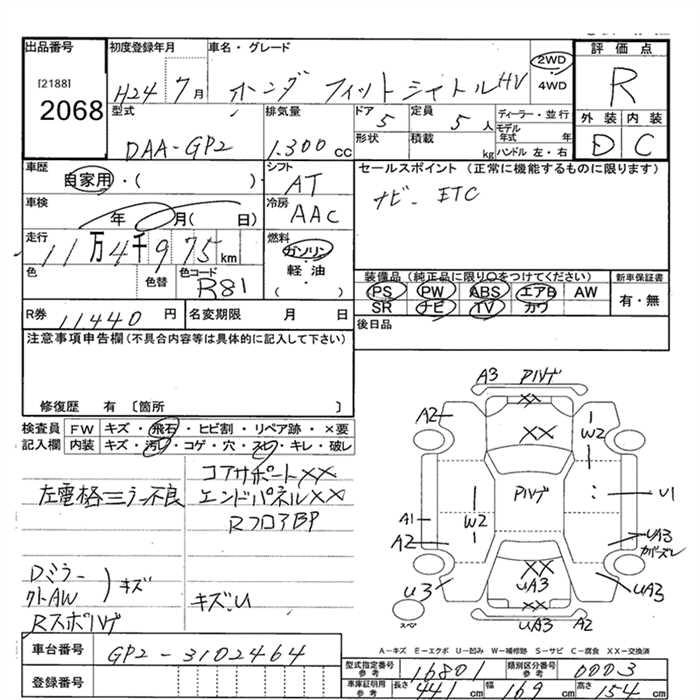 出品番号
[2188]
2068
初度登録年月
H24 7月
車名・グレード
ホンダ フィットシャトル HV
2WD
・
4WD
評価点
R
外装 内装
D C
型式
DAA-GP2
排気量
1.300 cc
ドア
5
定員
5 人
形状
積載
kg
ディーラー・並行
モデル年式 年
ハンドル 左・右
車歴
自家用・( )
シフト
AT
セールスポイント (正常に機能するものに限ります)
ナビ- ETC
車検
年 月( 日)
冷房
AAC
走行
11万4千975km
燃料
ガソリン
軽・油
( )
色
色替
色コード
R81
装備品(純正品に限り○をつけてください)
PS PW ABS エアB AW
SR ナビ TV カワ
新車保証書
有・無
R券 11440 円
名変期限 月 日
後日品
注意事項申告欄(不具合内容等は具体的に記入して下さい)
修復歴 有 〔箇所
検査員
記入欄
FW キズ・飛石・ヒビ割・リペア跡・×要
内装 キズ・汚レ・コゲ・穴・スレ・キレ・破レ
コアサポートXX
左電格ミラー不良 エンドパネルXX
RフロアBP
Dミラー
クトAW
Rスポハゲ
キズ
キズ.U
A3 Pハゲ
XX
A2
XX
W2
Pハゲ
U1
A1
W2
A2
UA3
カバーズレ
XX
U3
UA3
UA3
XX
UA3
A2
スペア
A-キズ E-エクボ U-凹み W-補修跡 S-サビ C-腐食 XX-交換済
車台番号
GP2-3102464
登録番号
型式指定番号
参考
16801
類別区分番号
参考
0003
車庫証明用
参考
長さ 441 cm
幅 169 cm
高さ 154 cm